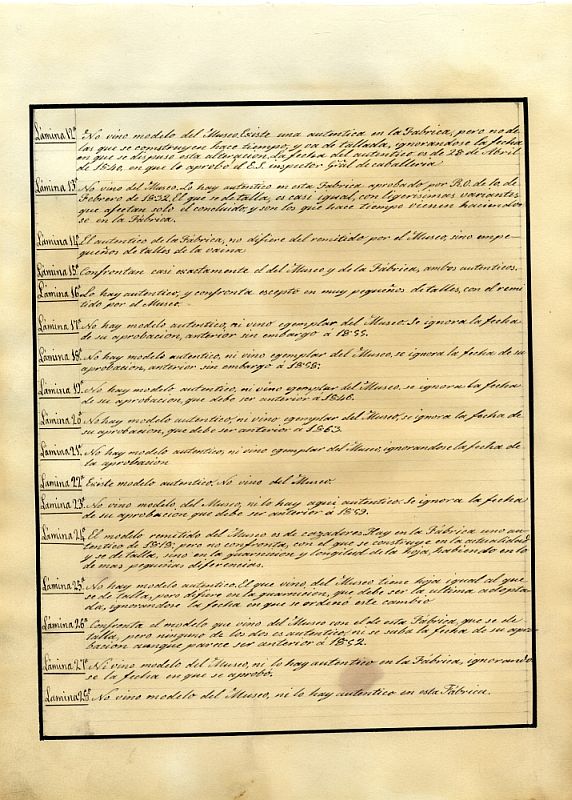 Lámina 12ª No vino modelo del Museo. Existe una autentica en la Fabrica, pero no de
las que se construyen hace tiempo, y va detallada, ignorandose la fecha
en que se dispuso esta alteracion. La fecha del autentico es de 28 de Abril
de 1840, en que lo aprobó el E.S. inspector Gral de caballeria
Lámina 13ª No vino del Museo. Lo hay autentico en esta Fabrica aprobado por R.O. de 10 de
Febrero de 1832. El que se detalla, es casi igual, con ligerisimas variantes
que afectan solo el concluido, y son los que hace tiempo vienen haciendo
se en la Fábrica.
Lámina 14ª El autentico de la Fábrica, no difiere del remitido por el Museo, sino en pe-
queños detalles de la vaina
Lámina 15ª Confrontan casi exactamente el del Museo y de la Fábrica, ambos autenticos.
Lámina 16ª Lo hay autentico, y confronta escepto en muy pequeños detalles, con el remi
tido por el Museo.
Lámina 17ª No hay modelo autentico, ni vino egemplar del Museo. Se ignora la fecha
de su aprobacion, anterior sin embargo á 1855.
Lámina 18ª No hay modelo autentico, ni vino egemplar del Museo, se ignora la fecha de su
aprobacion, anterior sin embargo á 1855.
Lámina 19ª No hay modelo autentico, ni vino egemplar del Museo, se ignora la fecha
de su aprobacion, que debe ser anterior á 1846.
Lámina 20ª No hay modelo autentico, ni vino egemplar del Museo, se ignora la fecha de
su aprobacion, que debe ser anterior á 1863.
Lámina 21ª No hay modelo autentico, ni vino egemplar del Museo, ignorandose la fecha de
la aprobacion
Lámina 22ª Existe modelo autentico. No vino del Museo.
Lámina 23ª No vino modelo, del Museo, ni lo hay aqui, autentico. Se ignora la fecha
de su aprobacion que debe ser anterior á 1853.
Lámina 24ª El modelo remitido del Museo es de cazadores. Hay en la Fábrica uno au-
tentico de 1818; pero no confronta, con el que se construye en la actualidad
y se detalla, sino en la guarnicion y longitud de la hoja, habiendo en lo
demas pequeñas diferencias.
Lámina 25ª No hay modelo autentico. El que vino, del Museo tiene hoja igual al que
se detalla, pero difiere en la guarnicion, que debe ser la ultima adopta
da, ignorandose la fecha en que se ordenó este cambio
Lámina 26ª Confronta el modelo que vino del Museo con el de esta Fábrica, que se de-
talla, pero ninguno de los dos es autentico, ni se sabe la fecha de su apro
bacion aunque parece ser anterior á 1852.
Lámina 27ª Ni vino modelo del Museo, ni lo hay autentico en la Fábrica, ignorando
se la fecha en que se aprobó.
Lámina 28ª No vino modelo del Museo, ni lo hay autentico en esta Fábrica.